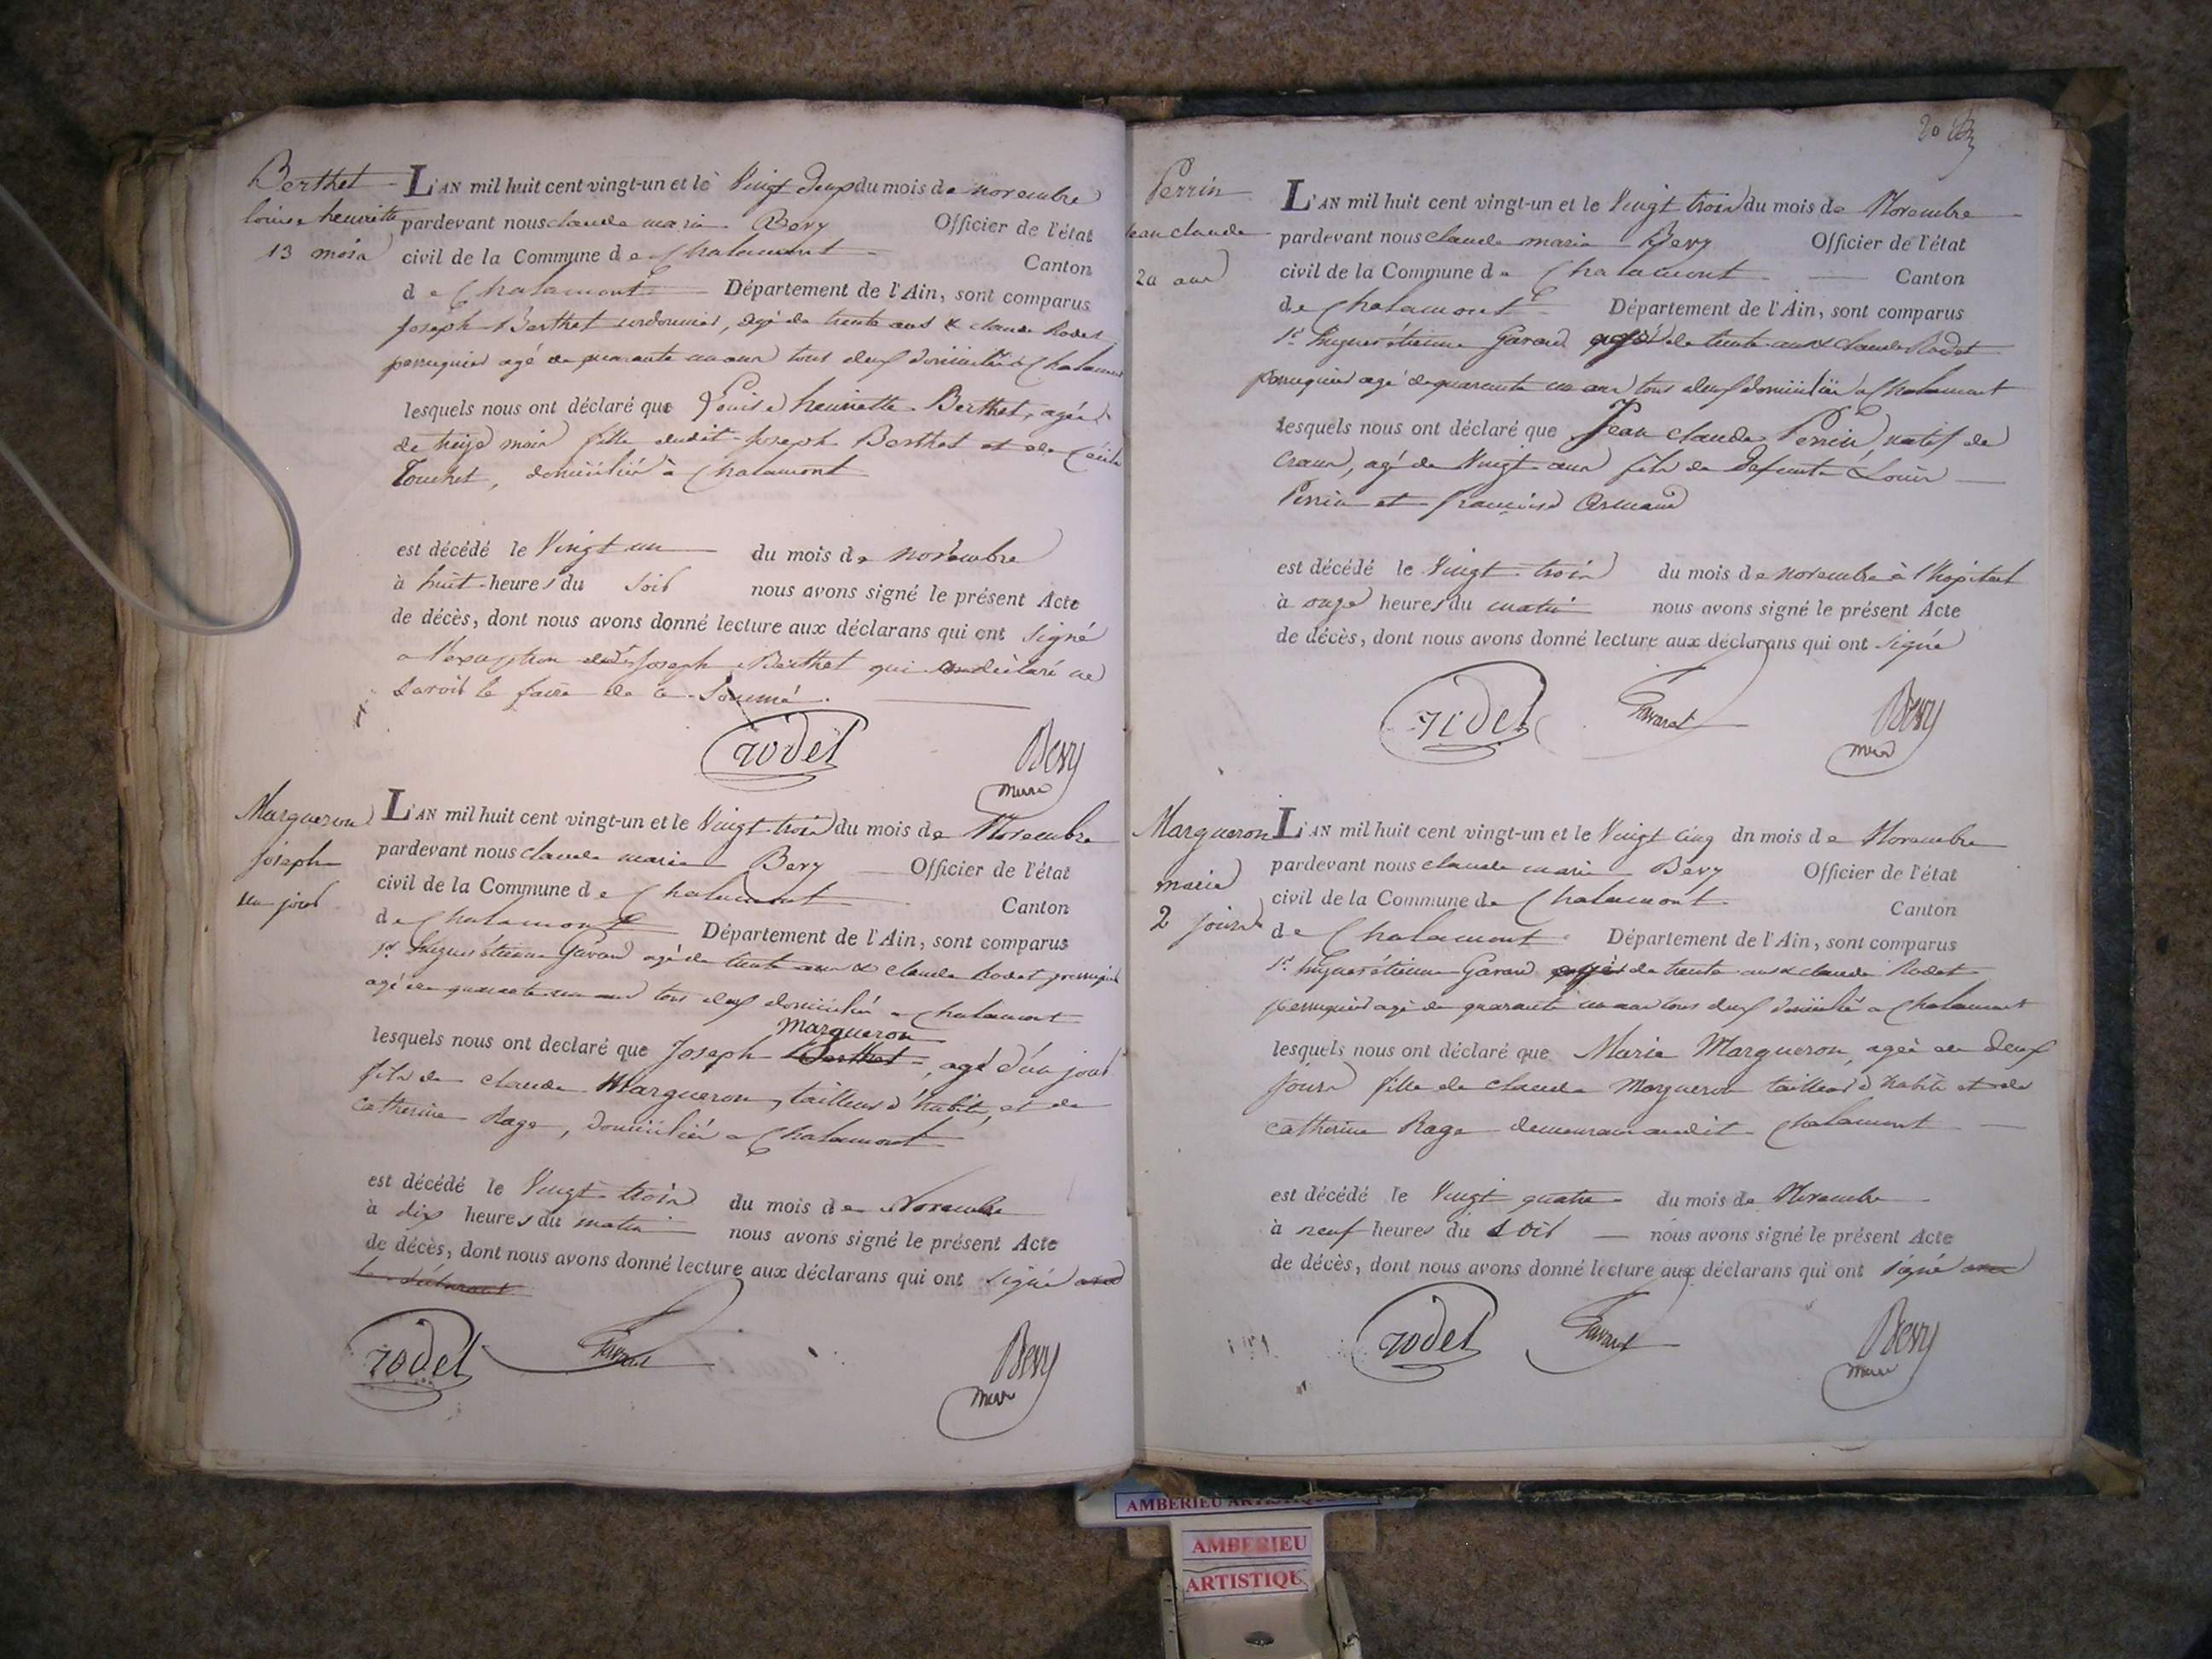 Berthet
louise henriette
13 mois
L'AN mil huit cent vingt-un et le Vingt deux du mois de novembre
pardevant nous claude marie Bevy Officier de l'état
civil de la Commune de Chalamont Canton
de Chalamont Département de l'Ain, sont comparus
joseph Berthet cordonnier, agé de trente ans & claude Rodet
perruquier agé de quarante un ans tous deux domiciliés à Chalamont
lesquels nous ont déclaré que Louise henriette Berthet, agée
de treize mois fille dudit joseph Berthet et de Cécile
Touchet, domiciliés à Chalamont
est décédé le Vingt un du mois de novembre
à huit heures du soir nous avons signé le présent Acte
de décès, dont nous avons donné lecture aux déclarans qui ont signé
a l'exception dudit joseph Berthet qui a déclaré ne
savoir le faire de ce sommé.
rodet
Bevy
mere
Margueron
joseph
un jour
L'AN mil huit cent vingt-un et le Vingt trois du mois de Novembre
pardevant nous claude marie Bevy Officier de l'état
civil de la Commune de Chalamont Canton
de Chalamont Département de l'Ain, sont comparus
Sr hugues étienne Gavand agé de trente ans & claude Rodet perruquier
agé de quarante un ans tous deux domiciliés a Chalamont
Margueron
lesquels nous ont declaré que Joseph Berthet, agé d'un jour
fils de claude Margueron, tailleur d'habits, et de
catherine Rage, domiciliés a Chalamont
est décédé le Vingt trois du mois de Novembre
à dix heures du matin nous avons signé le présent Acte
de décès, dont nous avons donné lecture aux déclarans qui ont signé avec
le déclarant
rodet
Bevy
mere
20
Perrin
jean claude
20 ans
L'AN mil huit cent vingt-un et le Vingt trois du mois de Novembre
pardevant nous claude marie Bevy Officier de l'état
civil de la Commune de Chalamont Canton
de Chalamont Département de l'Ain, sont comparus
Sr hugues étienne Gavand agé de trente ans & claude Rodet
perruquier agé de quarante un ans tous deux domiciliés a Chalamont
lesquels nous ont déclaré que Jean claude Perrin, natif de
Crans, agé de Vingt ans fils de defunts Louis
Perrin et françoise Armand
est décédé le Vingt trois du mois de novembre à l'hopital
à onze heures du matin nous avons signé le présent Acte
de décès, dont nous avons donné lecture aux déclarans qui ont signé
rodet
Bevy
mere
Margueron
marie
2 jours
L'AN mil huit cent vingt-un et le Vingt cinq dn mois de Novembre
pardevant nous claude marie Bevy Officier de l'état
civil de la Commune de Chalamont Canton
de Chalamont Département de l'Ain, sont comparus
Sr hugues étienne Gavand agé de trente ans & claude Rodet
perruquier agé de quarante un ans tous deux domicilié a Chalamont
lesquels nous ont déclaré que Marie Margueron, agée de deux
jours fille de claude Margueron tailleur d'habits et de
catherine Rage demeurans audit Chalamont
est décédé le Vingt quatre du mois de Novembre
à neuf heures du soir nous avons signé le présent Acte
de décès, dont nous avons donné lecture aux déclarans qui ont signé avec
rodet
Bevy
mere
AMBERIEU ARTISTIQUE
AMBERIEU
ARTISTIQU